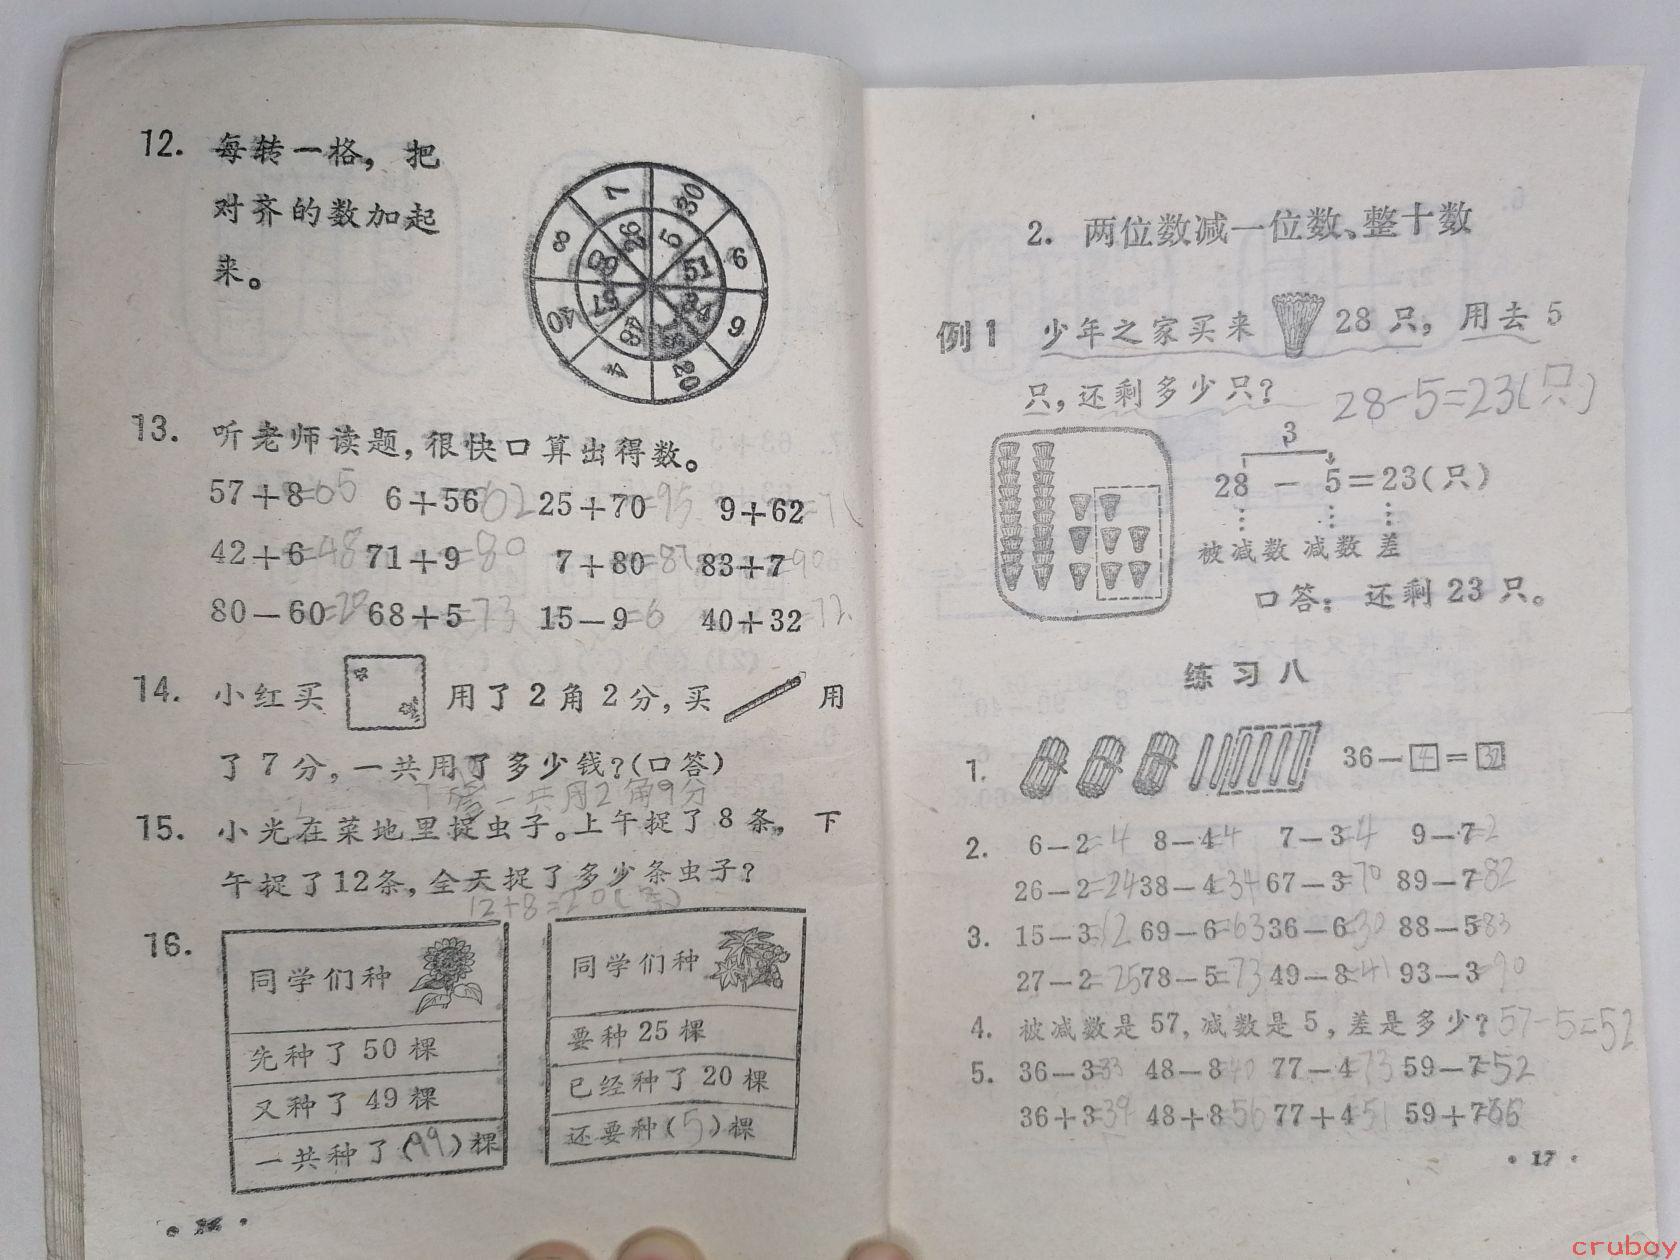 12. 每转一格，把
对齐的数加起
来。
7 30 6 9 20 4 40 8
26 5 51
13. 听老师读题，很快口算出得数。
57+8=65 6+56=62 25+70=95 9+62=71
42+6=48 71+9=80 7+80=87 83+7=90
80-60=20 68+5=73 15-9=6 40+32=72
14. 小红买 用了2角2分，买 用
了7分，一共用了多少钱？(口答)
一共用2角9分
15. 小光在菜地里捉虫子。上午捉了8条，下
午捉了12条，全天捉了多少条虫子？
12+8=20(条)
16. 同学们种
先种了50棵
又种了49棵
一共种了(99)棵
同学们种
要种25棵
已经种了20棵
还要种(5)棵
2. 两位数减一位数、整十数
例1 少年之家买来 28只，用去5
只，还剩多少只？ 28-5=23(只)
3
28-5=23(只)
被减数 减数 差
口答：还剩23只。
练习八
1. 36-4=32
2. 6-2=4 8-4=4 7-3=4 9-7=2
26-2=24 38-4=34 67-3=70 89-7=82
3. 15-3=12 69-6=63 36-6=30 88-5=83
27-2=25 78-5=73 49-8=41 93-3=90
4. 被减数是57，减数是5，差是多少？57-5=52
5. 36-3=33 48-8=40 77-4=73 59-7=52
36+3=39 48+8=56 77+4= 59+7=66
·17·
cruboy